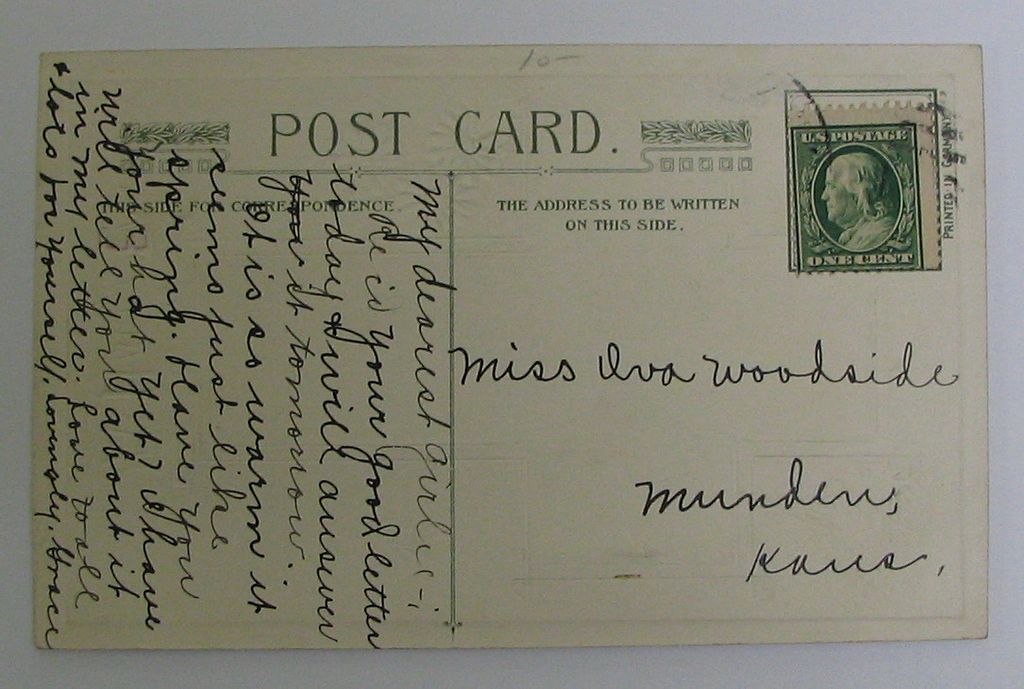 10-
POST CARD.
THIS SIDE FOR CORRESPONDENCE.
THE ADDRESS TO BE WRITTEN
ON THIS SIDE.
U.S. POSTAGE
ONE CENT
PRINTED IN GERMANY
Miss Iva Woodside
Munden,
Kans,
My dearest girlie:-
Re'c'd your good letter
today & will answer
you it tomorrow.
It is so warm it
seems just like
spring. Have you
your hat yet? I have
Will tell you about it
in my letter. Love to all
& lots for yourself. Lovingly, Grace